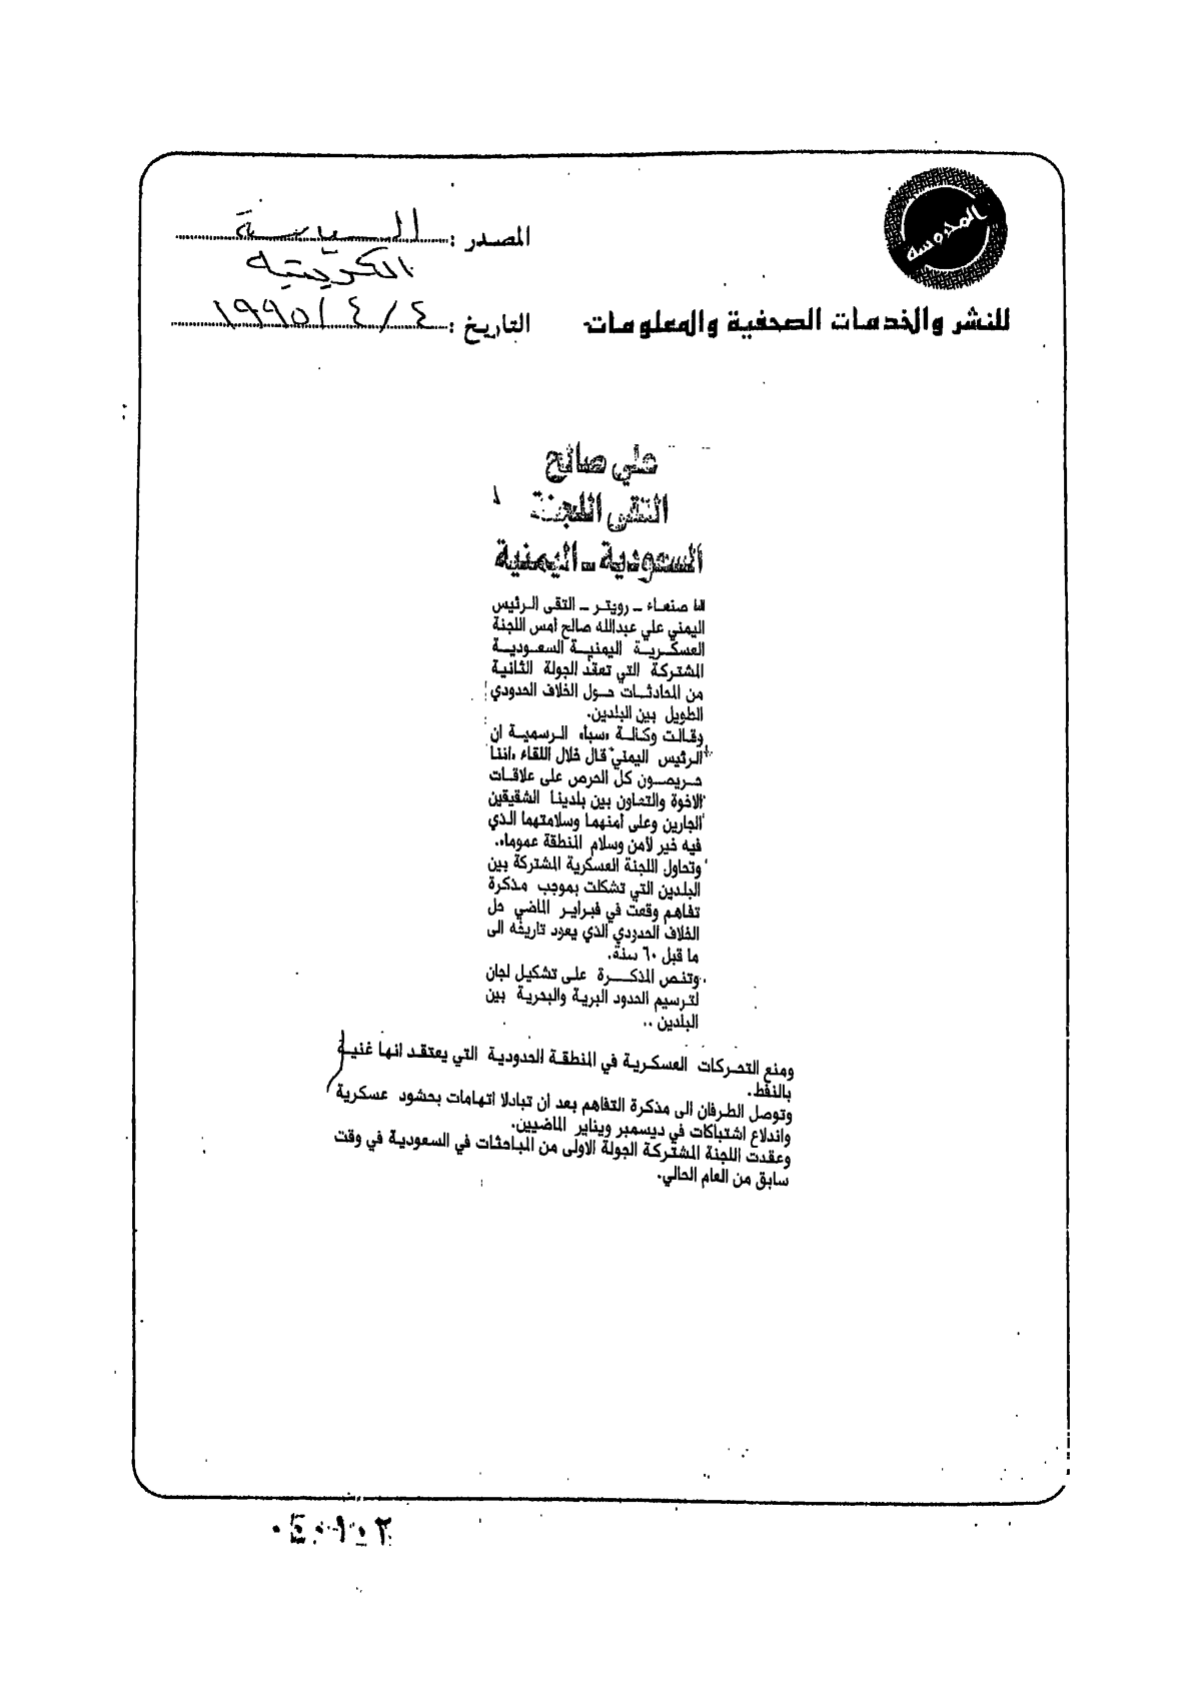 المحروسة
المصدر : السياسة
الكويتيه
للنشر والخدمات الصحفية والمعلومات
التاريخ : ٤ / ٤ / ١٩٩٥
علي صالح
التقى اللجنة
السعودية ـ اليمنية
صنعاء ـ رويتر ـ التقى الرئيس
اليمني علي عبدالله صالح أمس اللجنة
العسكرية اليمنية السعودية
المشتركة التي تعقد الجولة الثانية
من المحادثات حول الخلاف الحدودي
الطويل بين البلدين.
وقالت وكالة «سبأ» الرسمية ان
الرئيس اليمني قال خلال اللقاء «اننا
حريصون كل الحرص على علاقات
الاخوة والتعاون بين بلدينا الشقيقين
الجارين وعلى أمنهما وسلامتهما الذي
فيه خير لأمن وسلام المنطقة عموما».
وتحاول اللجنة العسكرية المشتركة بين
البلدين التي تشكلت بموجب مذكرة
تفاهم وقعت في فبراير الماضي حل
الخلاف الحدودي الذي يعود تاريخه الى
ما قبل ٦٠ سنة.
وتنص المذكرة على تشكيل لجان
لترسيم الحدود البرية والبحرية بين
البلدين ..
ومنع التحركات العسكرية في المنطقة الحدودية التي يعتقد انها غنية
بالنفط.
وتوصل الطرفان الى مذكرة التفاهم بعد ان تبادلا اتهامات بحشود عسكرية
واندلاع اشتباكات في ديسمبر ويناير الماضيين.
وعقدت اللجنة المشتركة الجولة الاولى من المباحثات في السعودية في وقت
سابق من العام الحالي.